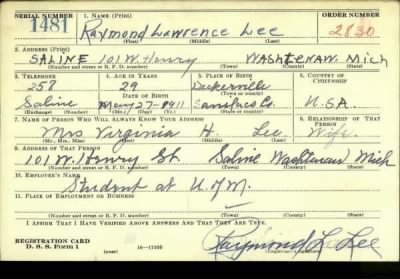 SERIAL NUMBER 1. NAME (Print) ORDER NUMBER
1481 Raymond Lawrence Lee 2830
(First) (Middle) (Last)
2. ADDRESS (Print)
SALINE 101 W. Henry WASHTENAW Mich
(Number and street or R. F. D. number) (Town) (County) (State)
3. TELEPHONE 4. AGE IN YEARS 5. PLACE OF BIRTH 6. COUNTRY OF CITIZENSHIP
258 29 Deckerville
DATE OF BIRTH (Town or county)
Saline May 27 1911 Sanilac Co. U.S.A.
(Exchange) (Number) (Mo.) (Day) (Yr.) (State or country)
7. NAME OF PERSON WHO WILL ALWAYS KNOW YOUR ADDRESS 8. RELATIONSHIP OF THAT PERSON
Mrs Virginia H. Lee Wife
(Mr., Mrs., Miss) (First) (Middle) (Last)
9. ADDRESS OF THAT PERSON
101 W. Henry St. Saline Washtenaw Mich
(Number and street or R. F. D. number) (Town) (County) (State)
10. EMPLOYER'S NAME
Student at U. of M.
11. PLACE OF EMPLOYMENT OR BUSINESS
(Number and street or R. F. D. number) (Town) (County) (State)
I AFFIRM THAT I HAVE VERIFIED ABOVE ANSWERS AND THAT THEY ARE TRUE.
REGISTRATION CARD
D. S. S. Form 1 (over) 16-17105 Raymond L. Lee
(Registrant's signature)